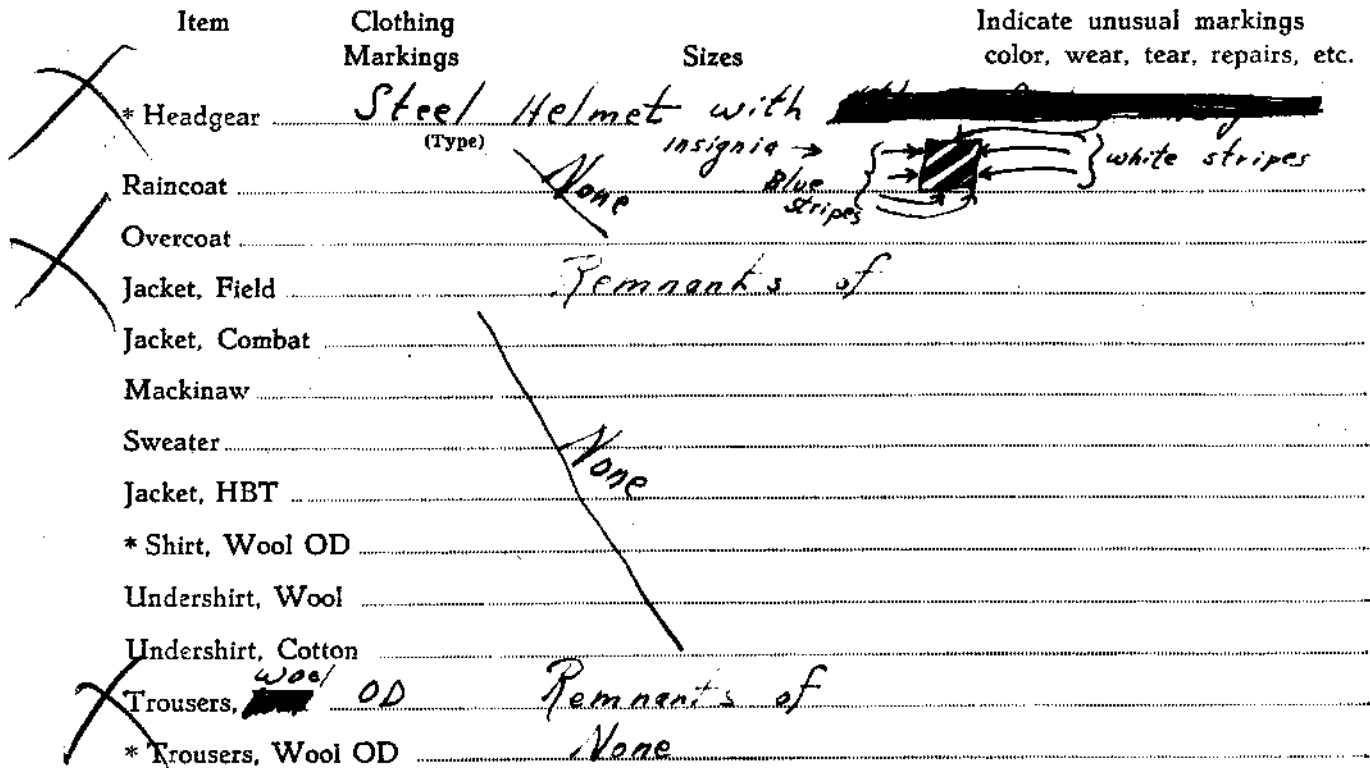 Item Clothing Markings Sizes Indicate unusual markings color, wear, tear, repairs, etc.
* Headgear Steel Helmet with
(Type) insignia → white stripes
Raincoat None Blue stripes
Overcoat
Jacket, Field Remnants of
Jacket, Combat
Mackinaw
Sweater
Jacket, HBT None
* Shirt, Wool OD
Undershirt, Wool
Undershirt, Cotton
Trousers, Wool OD Remnants of
* Trousers, Wool OD None